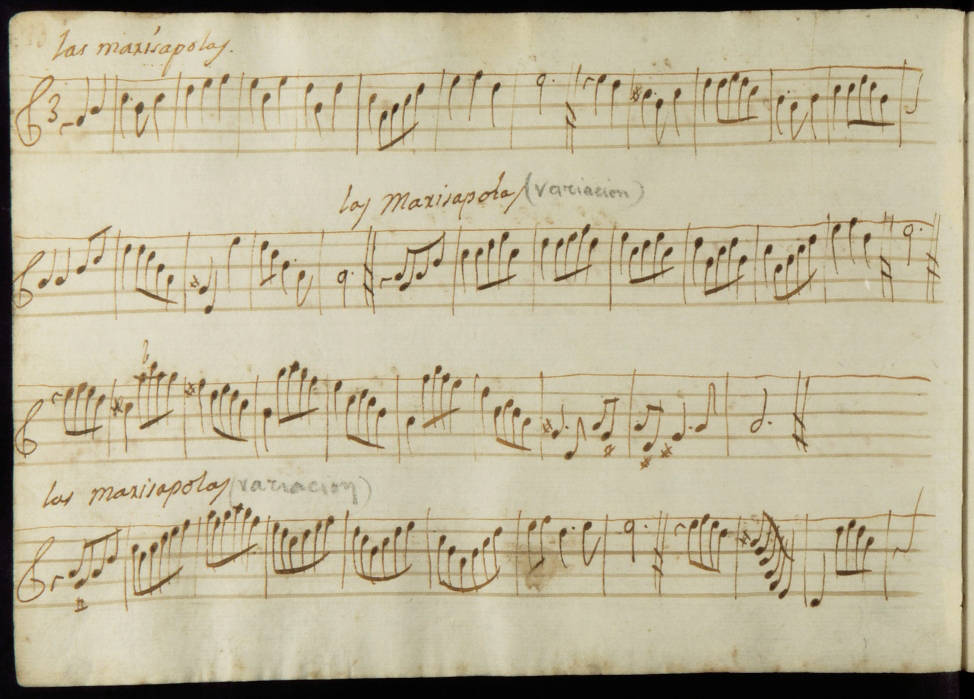 las marisapolas.
3
las Marisapolas (variacion)
las marisapolas (variacion)